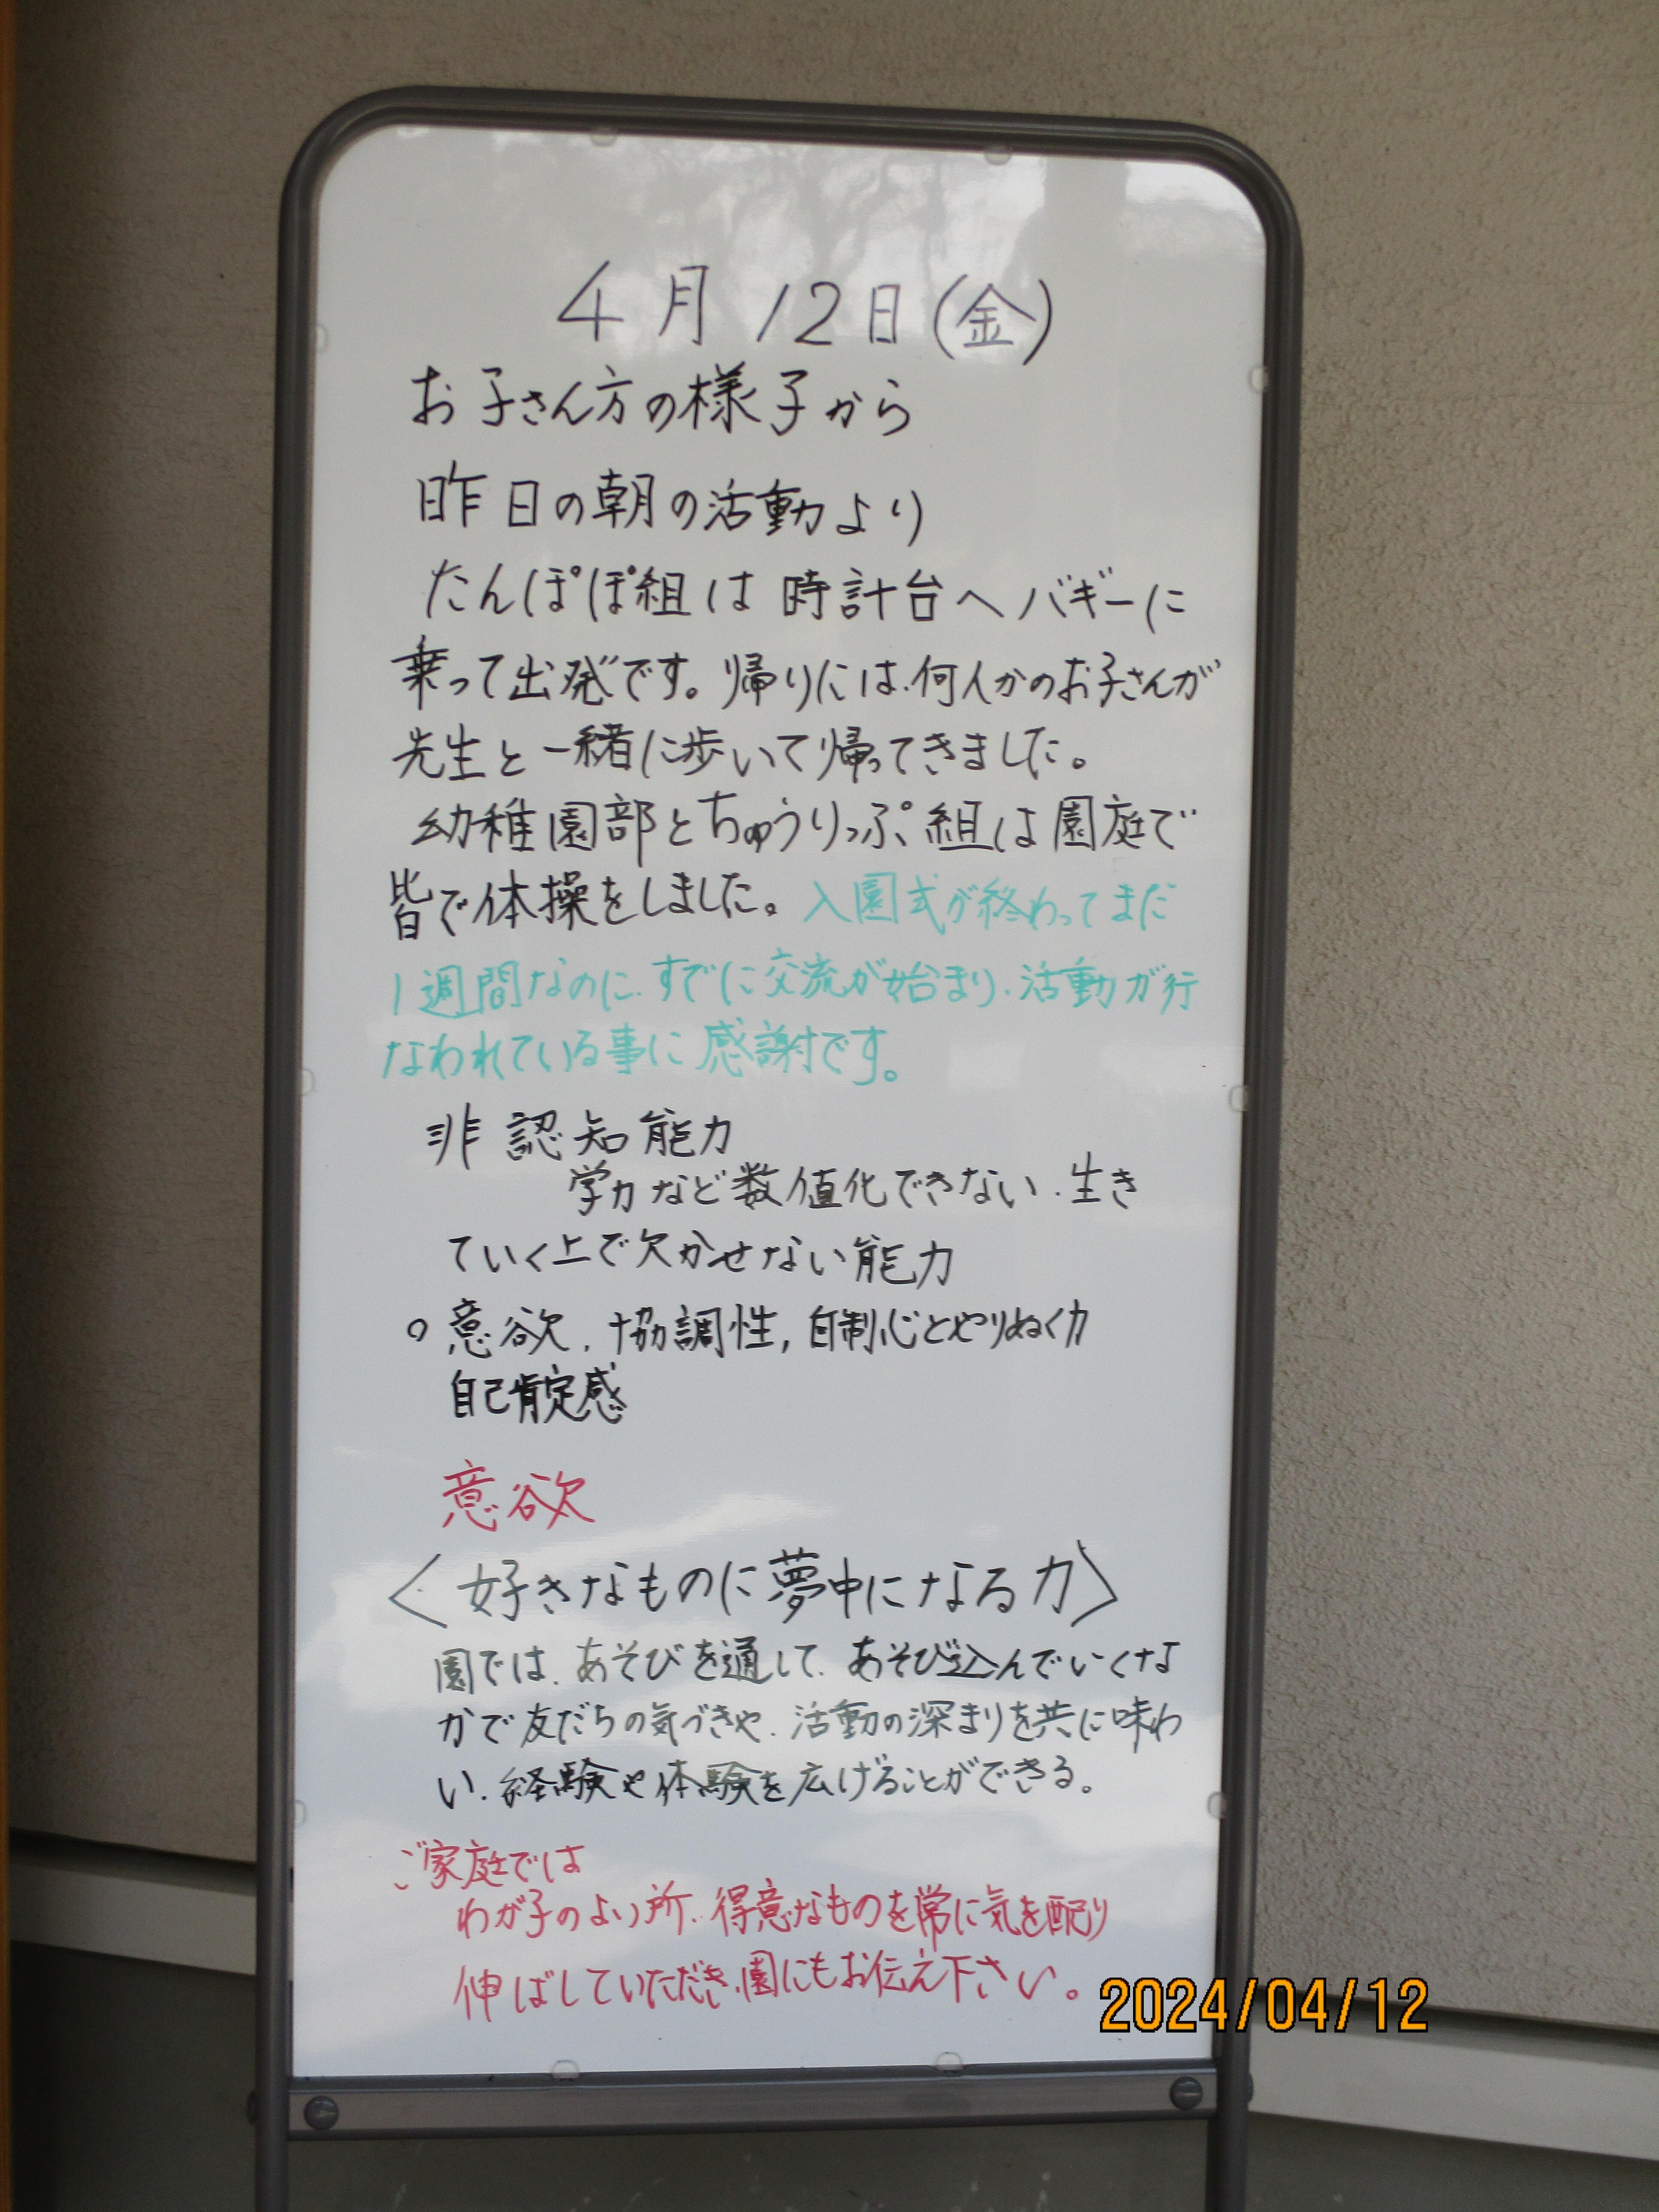 4月12日(金)
お子さん方の様子から
昨日の朝の活動より
たんぽぽ組は時計台へバギーに
乗って出発です。帰りには、何人かのお子さんが
先生と一緒に歩いて帰ってきました。
幼稚園部とちゅうりっぷ組は園庭で
皆で体操をしました。入園式が終わってまだ
1週間なのに、すでに交流が始まり、活動が行
なわれている事に感謝です。
非認知能力
学力など数値化できない、生き
ていく上で欠かせない能力
○意欲、協調性,自制心とやりぬく力
自己肯定感
意欲
〈好きなものに夢中になる力〉
園では、あそびを通して、あそび込んでいくな
かで友だちの気づきや、活動の深まりを共に味わ
い、経験や体験を広げることができる。
ご家庭では
わが子のよい所、得意なものを常に気を配り
伸ばしていただき、園にもお伝え下さい。
2024/04/12